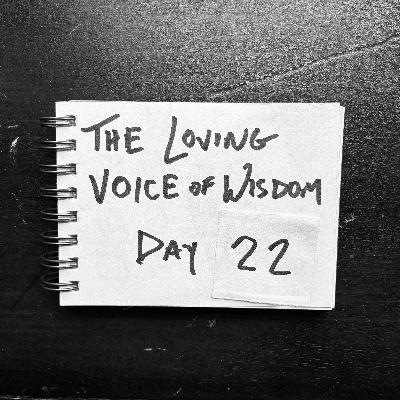 The Loving
Voice of Wisdom
Day 22